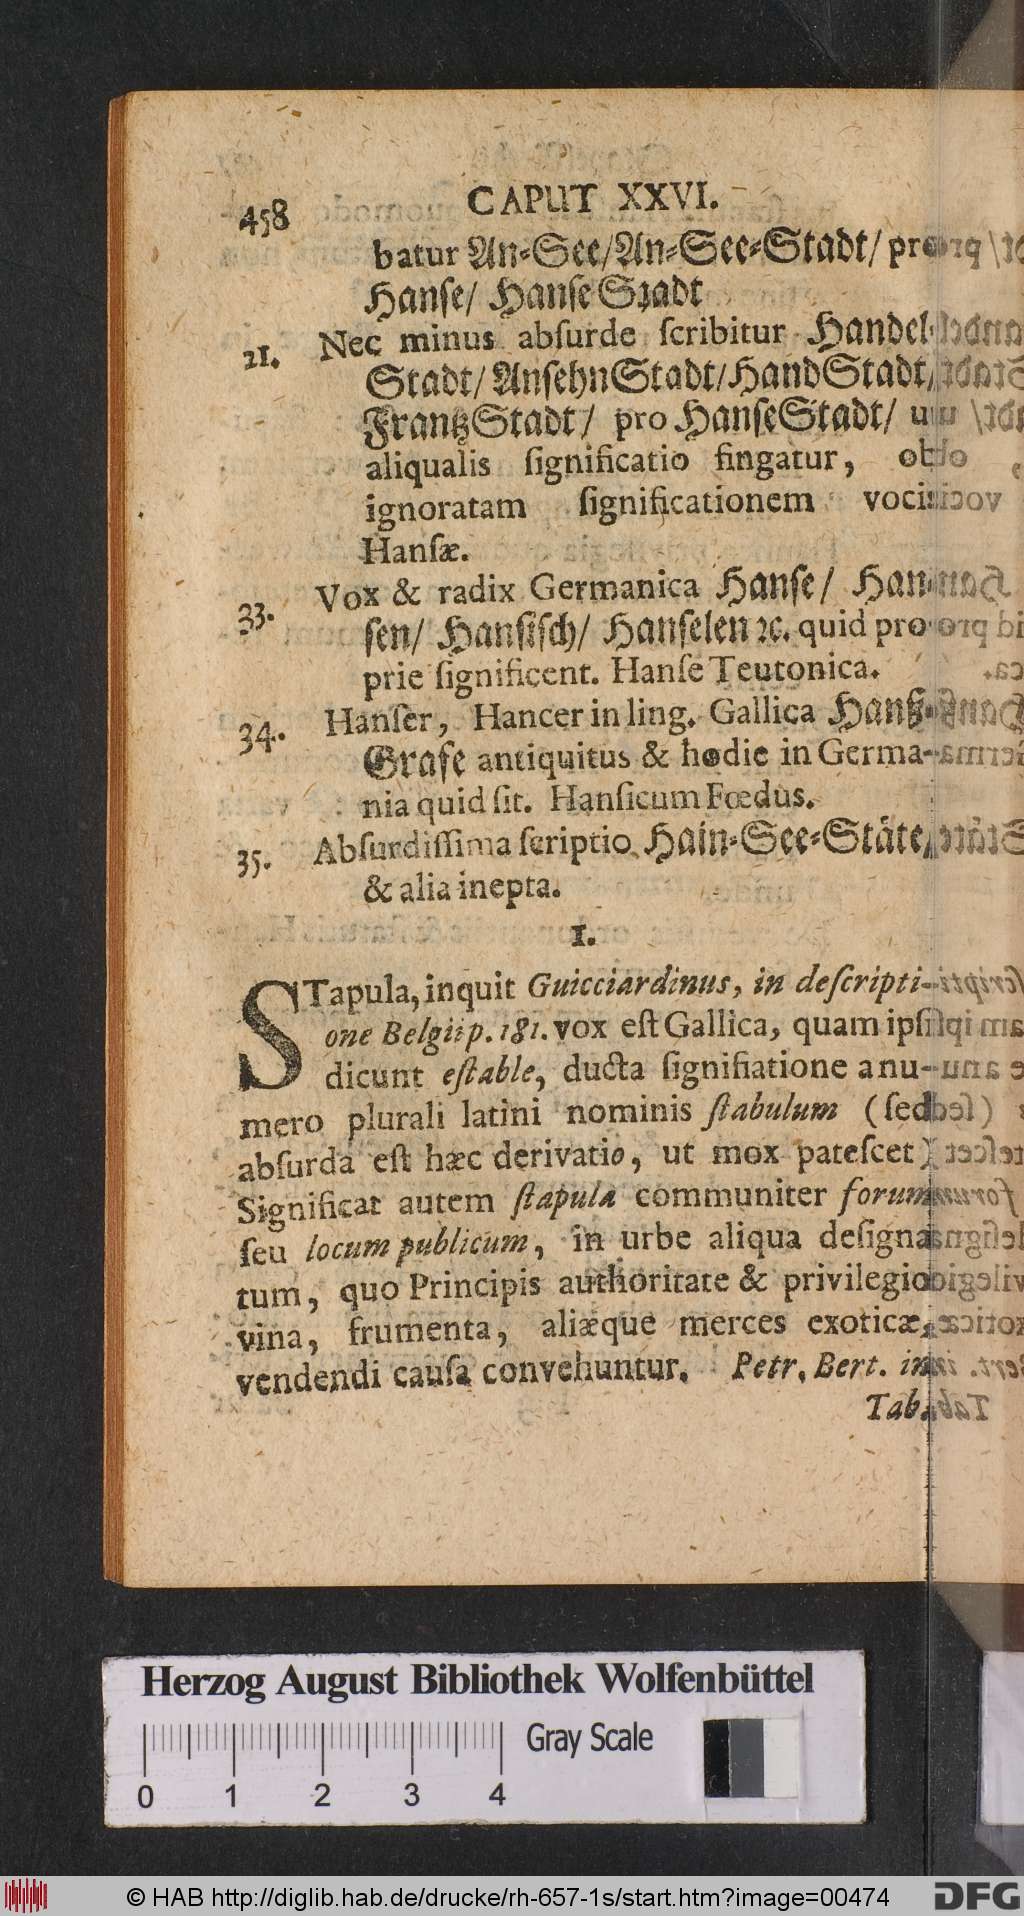 458 CAPUT XXVI.
batur An-See/An-See-Stadt/ pro
Hanse/ HanseSzadt
21. Nec minus abſurde ſcribitur Handel-
Stadt/AnſehnStadt/HandStadt/
FrantzStadt/ pro HanſeStadt/ u
aliqualis ſignificatio fingatur, ob
ignoratam ſignificationem vocis
Hanſæ.
33. Vox & radix Germanica Hanſe/ Han-
ſen/ Hanſiſch/ Hanſelen ꝛc. quid pro-
prie ſignificent. Hanſe Teutonica.
34. Hanſer, Hancer in ling. Gallica Hantz-
Grafe antiquitus & hodie in Germa-
nia quid ſit. Hanſicum Fœdus.
35. Abſurdiſſima ſcriptio Hain-See-Stäte/
& alia inepta.
1.
STapula, inquit Guicciardinus, in deſcripti-
one Belgii p. 181. vox eſt Gallica, quam ipſi
dicunt eſtable, ducta ſignifiatione a nu-
mero plurali latini nominis ſtabulum (ſed
abſurda eſt hæc derivatio, ut mox pateſcet)
Significat autem ſtapula communiter forum
ſeu locum publicum, in urbe aliqua deſigna-
tum, quo Principis authoritate & privilegio
vina, frumenta, aliæque merces exoticæ,
vendendi cauſa convehuntur. Petr. Bert. in
Tab.
Herzog August Bibliothek Wolfenbüttel
Gray Scale
0 1 2 3 4
© HAB http://diglib.hab.de/drucke/rh-657-1s/start.htm?image=00474
DFG